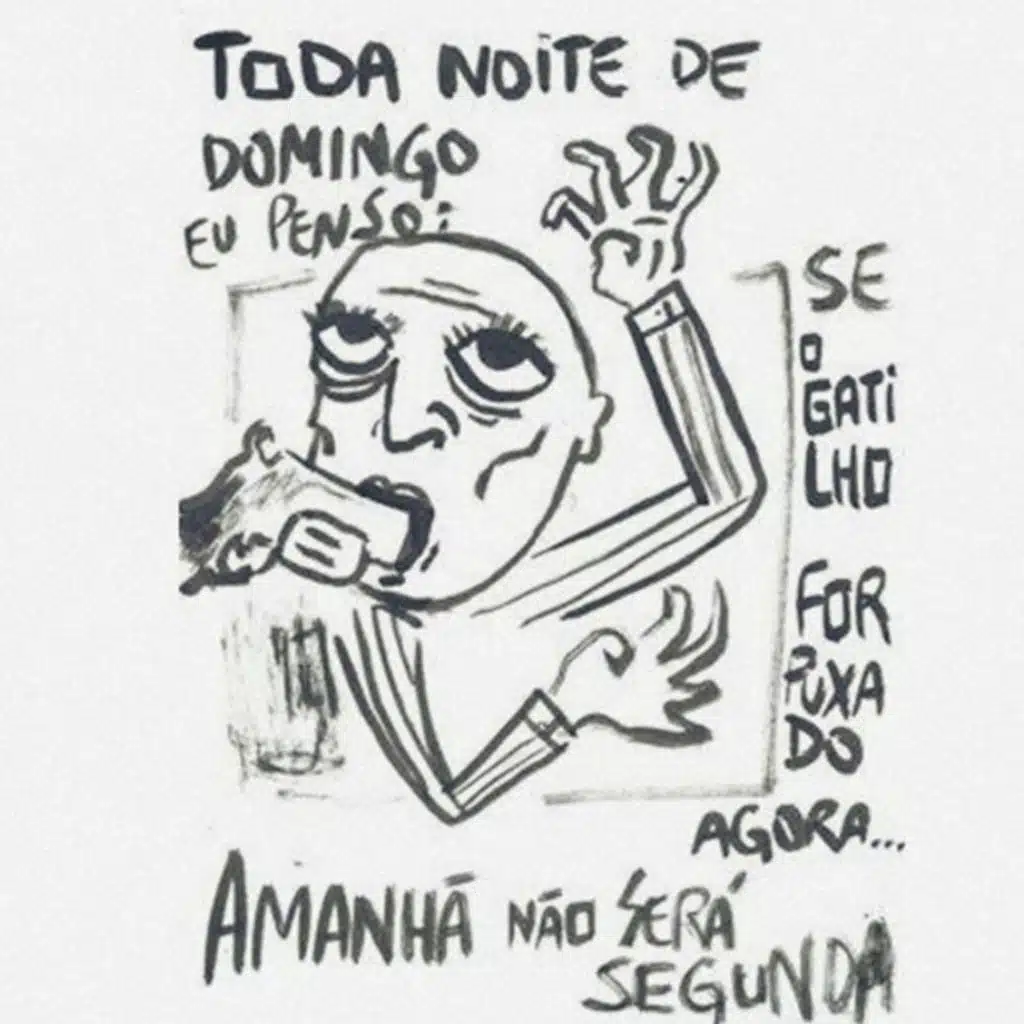 TODA NOITE DE
DOMINGO
EU PENSO:
SE
O
GATI
LHO
FOR
PUXA
DO
AGORA...
AMANHÃ NÃO SERÁ
SEGUNDA